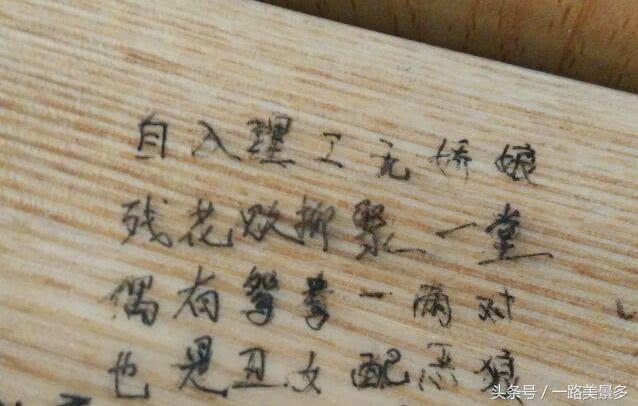 自入理工无娇娘
残花败柳聚一堂
偶有鸳鸯一两对
也是丑女配恶狼
头条号／一路美景多